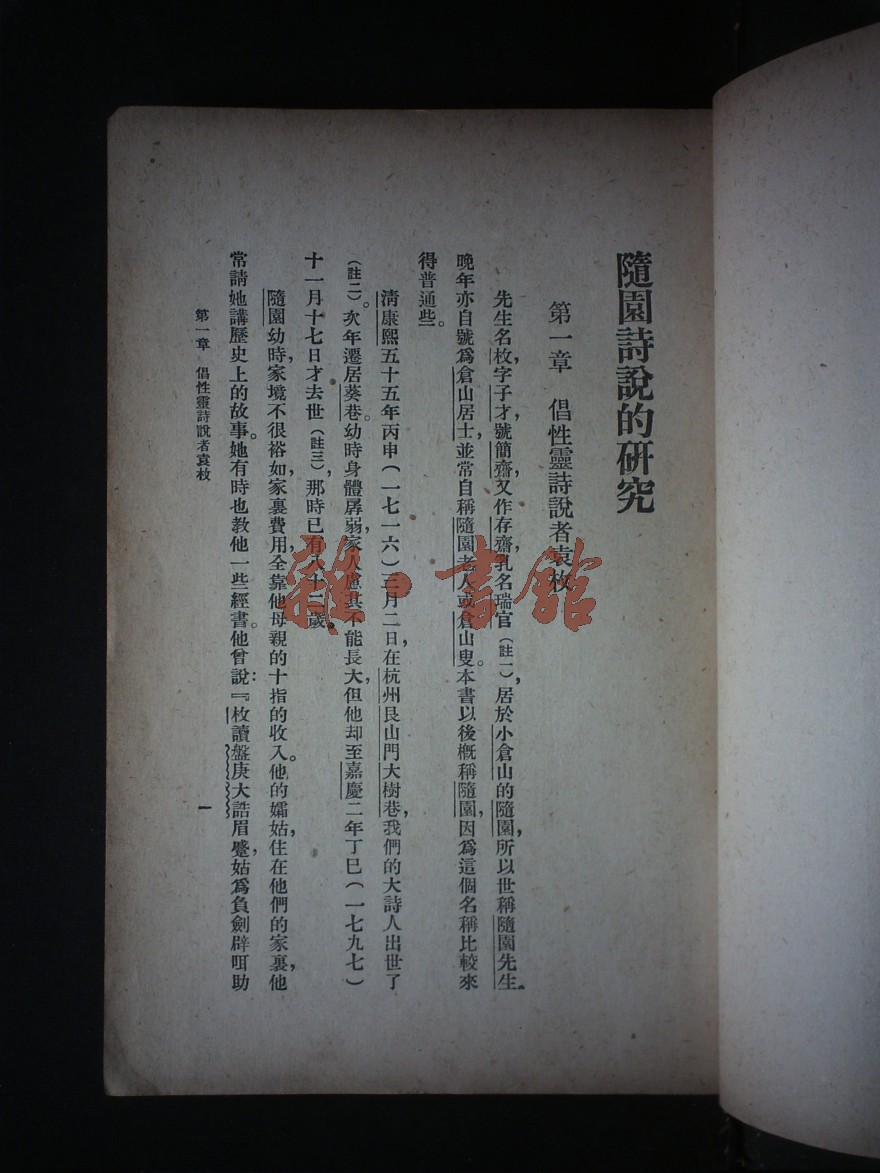 隨園詩說的研究
第一章　倡性靈詩說者袁枚
先生名枚，字子才，號簡齋，又作存齋，乳名瑞官（註一），居於小倉山的隨園，所以世稱隨園先生。
晚年亦自號爲倉山居士，並常自稱隨園老人或倉山叟。本書以後概稱隨園，因爲這個名稱比較來
得普通些。
清康熙五十五年丙申（一七一六）三月二日，在杭州艮山門大樹巷，我們的大詩人出世了
（註二）。次年遷居葵巷。幼時身體孱弱，家人慮其不能長大，但他却至嘉慶二年丁巳（一七九七）
十一月十七日才去世（註三），那時已有八十二歲。
隨園幼時，家境不很裕如，家裏費用，全靠他母親的十指的收入。他的孀姑，住在他們的家裏，他
常請她講歷史上的故事。她有時也教他一些經書。他曾說：『枚讀盤庚大誥，眉蹙，姑爲負劍辟咡助
第一章　倡性靈詩說者袁枚
一
雜·書館